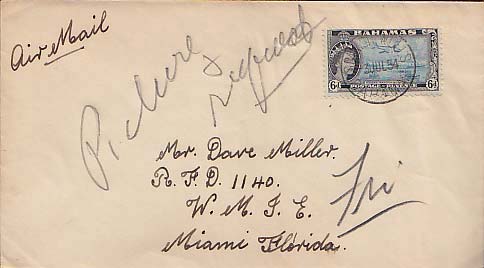 Air Mail
Picture
request
BAHAMAS
6d 6d
POSTAGE & REVENUE
20 JUL 54
Mr. Dave Miller.
R. F. D. 1140.
W. M. I. E.
Miami Florida.
Fri